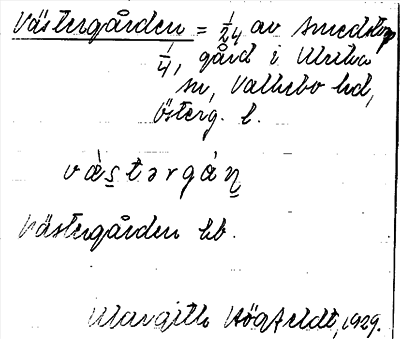 Västergården = 1/24 av Smedstorp
1/4, gård i Ulrika
sn, Vallebo hd,
Österg. l.
vàs̲tərgàn̲
Västergården hb.
Margith Högfeldt, 1929.